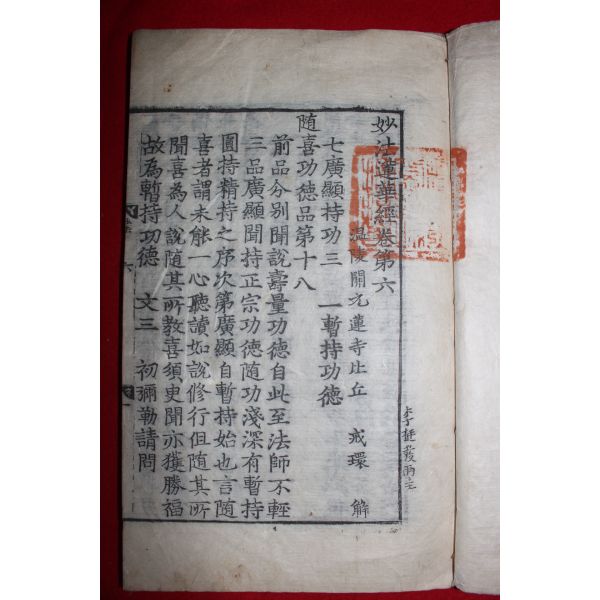 妙法蓮華經卷第六
温陵開元蓮寺比丘 戒環 解
七廣顯持功三 一暫持功德
随喜功德品第十八
前品分别聞說壽量功德自此至法師不輕
三品廣顯聞持正宗功德随功淺深有暫持
圓持精持之序次第廣顯自暫持始也言随
喜者謂未能一心聽讀如說修行但随其所
聞喜為人說随其所教喜須臾聞亦獲勝福
故為暫持功德 文三 初彌勒請問